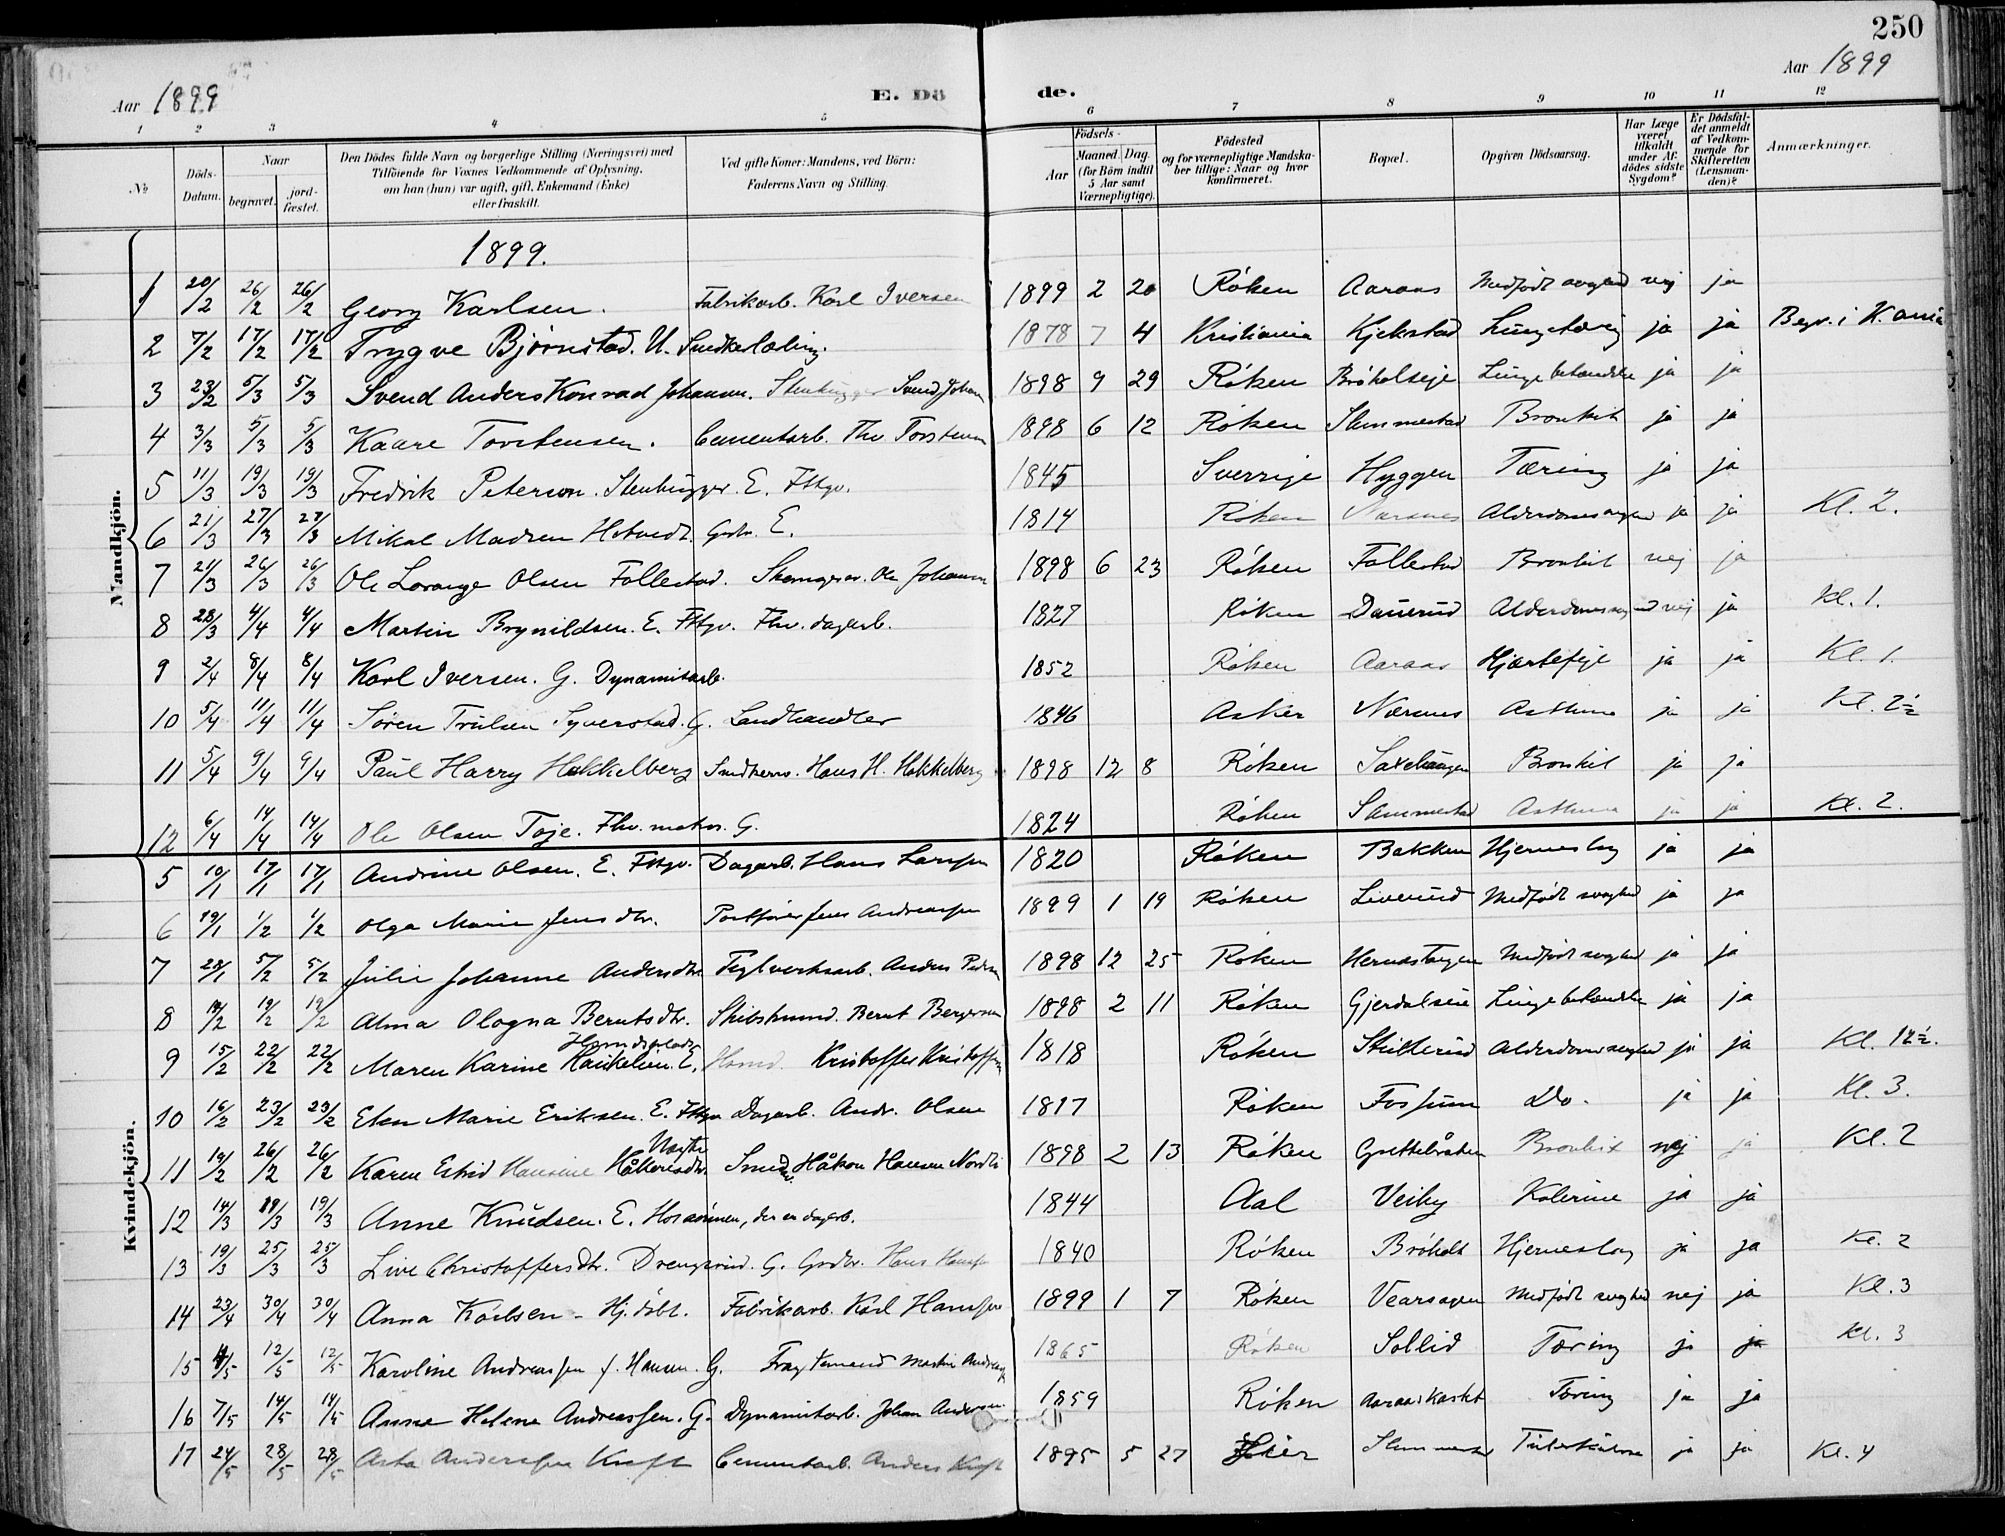 250
Aar 1899
Aar 1899
E. Dö de.
1 2 3 4 5 6 7 8 9 10 11 12
No
Döds-Datum.
Naar
begravet.
jord-fæstet.
Den Dödes fulde Navn og borgerlige Stilling (Næringsvei) med
Tilföiende for Voxnes Vedkommende af Oplysning,
om han (hun) var ugift, gift, Enkemand (Enke)
eller fraskilt.
Ved gifte Koner: Mandens, ved Börn:
Faderens Navn og Stilling.
Födsels-
Aar
Maaned. Dag.
(for Börn indtil
5 Aar samt
Værnepligtige).
Födested
og for værnepligtige Mandska-
ber tillige: Naar og hvor
konfirmeret.
Bopæl.
Opgiven Dödsaarsag.
Har Læge
været
tilkaldt
under Af-
dödes sidste
Sygdom?
Er Dödsfal-
det anmeldt
af Vedkom-
mende for
Skifteretten
(Lensman-
den)?
Anmærkninger.
Mandkjön.
1899.
1 20/2 26/2 26/2 Georg Karlsen. Fabrikarb. Karl Iversen 1899 2 20 Röken Aaraas Medfödt svaghed nej ja
2 7/2 17/2 17/2 Trygve Björnstad. U. Snedkerlærling. 1878 7 4 Kristiania Kjekstad Lungetæring ja ja Begr. i K.ania
3 23/2 5/3 5/3 Svend Anders Konrad Johansen. Stenhugger Svend Johan 1898 9 29 Röken Bröholseje Lungebetændelse ja ja
4 3/3 5/3 5/3 Kaare Torstensen. Cementarb. Thv Torstensen 1898 6 12 Röken Slemmestad Bronkit ja ja
5 11/3 19/3 19/3 Fredrik Peterson. Stenhugger. E. Fttgv. 1845 Sverrige Hyggen Tæring ja ja
6 21/3 27/3 27/3 Mikal Madsen Hotvedt. Grdbr. E. 1814 Röken Alderdomssvaghed ja ja Kl. 2.
7 21/3 26/3 26/3 Ole Lorange Olsen Follestad. Skomager Ole Johansen 1898 6 23 Röken Follestad Bronkit nej ja
8 28/3 4/4 4/4 Martin Brynildsen. E. Fttgv. Fhv. dagarb. 1827 Röken Dauerud Alderdomssvaghed nej ja Kl. 1.
9 2/4 8/4 8/4 Karl Iversen. G. Dynamitarb. 1852 Röken Aaraas Hjærtefeje ja ja Kl. 1.
10 5/4 11/4 11/4 Sören Trulsen Syverstad. G. Landhandler 1846 Asker Nærsnes Asthma ja ja Kl. 2½
11 5/4 9/4 9/4 Paul Harry Hokkelberg Snedkerm. Hans H. Hokkelberg 1898 12 8 Röken Bronkit ja ja
12 6/4 14/4 14/4 Ole Olsen Töje. Fhv. matr. G. 1824 Röken Slemmestad Asthma ja ja Kl. 2.
Kvindekjön.
5 10/1 17/1 17/1 Andrine Olsen. E. Fttgv. Dagarb. Hans Larssen 1820 Röken Bakken Hjerneslag ja ja
6 19/1 1/2 1/2 Olga Marie Jensdtr. Postförer Jens Andreassen 1899 1 19 Röken Liverud Medfödt svaghed ja ja
7 28/1 5/2 5/2 Julie Johanne Andersdtr. Teglverksarb. Anders Pedersen 1898 12 25 Röken Hernestangen Medfödt svaghed ja ja
8 19/2 19/2 Alma Ologna Berntsdtr. Skibstmmd. Bernt Bergersen 1898 2 11 Röken Gjerdalseie Lungebetændelse ja ja
9 15/2 22/2 22/2 Maren Karine Haukelien. E. Kristoffer Kristoffersen 1818 Röken Stikkerud Alderdomssvaghed ja ja Kl. 12½.
10 16/2 23/2 23/2 Elen Marie Eriksen. E. Fttgv Dagarb. Andr. Olsen 1817 Röken Fossum Do. ja ja Kl. 3.
11 19/2 26/2 26/2 Karen Estrid Hansine Håkensdtr Smed Håkon Hansen Nordli 1898 2 13 Röken Grettebråten Bronkit nej ja Kl. 2
12 14/3 19/3 19/3 Anne Knudsen. E. Hos sönnen, der er dagarb. 1844 Aal Veiby Kolerine ja ja
13 19/3 25/3 25/3 Live Christoffersdtr. Drengsrud. G. Grdbr. Hans Hanss 1840 Röken Bröholt Hjerneslag ja ja Kl. 2
14 23/4 30/4 30/4 Anna Karlsen - Hj. döbt. Fabrikarb. Karl Hanssen 1899 1 7 Röken Medfödt svaghed nej ja Kl. 3
15 4/5 12/5 12/5 Karoline Andreassen f. Hansen. G. Fragtemand Martin Andreass 1865 Röken Sollid Tæring ja ja Kl. 3
16 7/5 14/5 14/5 Anne Helene Andreassen. G. Dynamitarb. Johan Andersen 1859 Röken Tæring ja ja
17 24/5 28/5 28/5 Asta Anderssen Kraft Cementarb. Anders Kraft 1895 5 27 Lier Slemmestad Tuberkulose ja ja Kl. 4